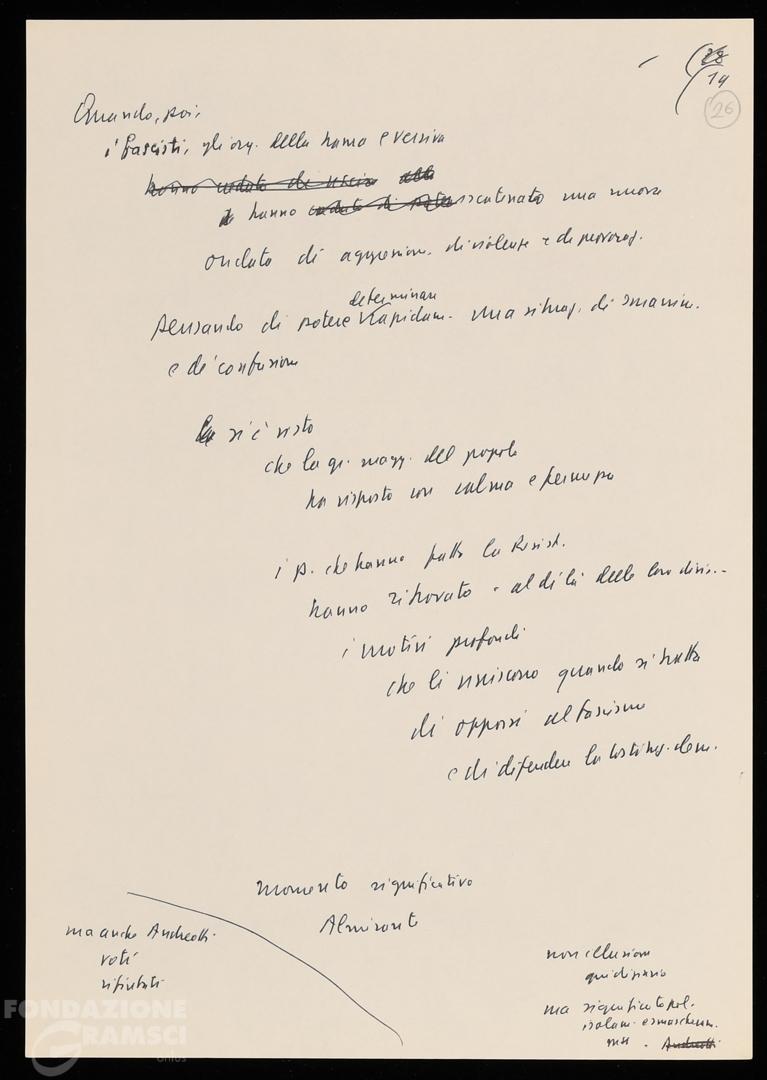 28
19
26
Quando, poi,
i fascisti, gli org. della trama eversiva
hanno
hanno scatenato una nuova
ondata di aggression. di violenze e di provocaz.
determinare
pensando di potere rapidam. una situaz. di smarrim.
e di confusione
si è visto
che la gr. magg. del popolo
ha risposto con calma e fermezza
i p. che hanno fatto la Resist.
hanno ritrovato - al di là delle loro divis. -
i motivi profondi
che li uniscono quando si tratta
di opporsi al fascismo
e di difendere la Costituz. dem.
Momento significativo
Almirante
ma anche Andreotti
voti
rifiutati
non illusioni
ma significato pol.
isolam. e smascheram.
MSI. Andreotti
FONDAZIONE
GRAMSCI
onlus